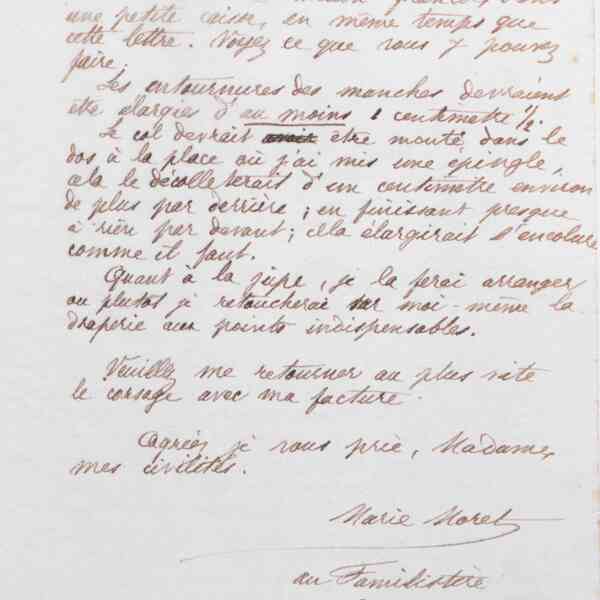 une petite caisse, en même temps que
cette lettre. Voyez ce que vous y pouvez
faire.
Les entournures des manches devraient
être élargies d'au moins 1 centimètre 1/2.
Le col devrait avoir être monté dans le
dos à la place où j'ai mis une épingle,
cela le décolleterait d'un centimètre environ
de plus par derrière ; en finissant presque
à rien par devant ; cela élargirait l'encolure
comme il faut.
Quant à la jupe, je la ferai arranger
ou plutôt je retoucherai moi-même la
draperie aux points indispensables.
Veuillez me retourner au plus vite
le corsage avec ma facture.
Agréez je vous prie, Madame,
mes civilités.
Marie Moret
au Familistère